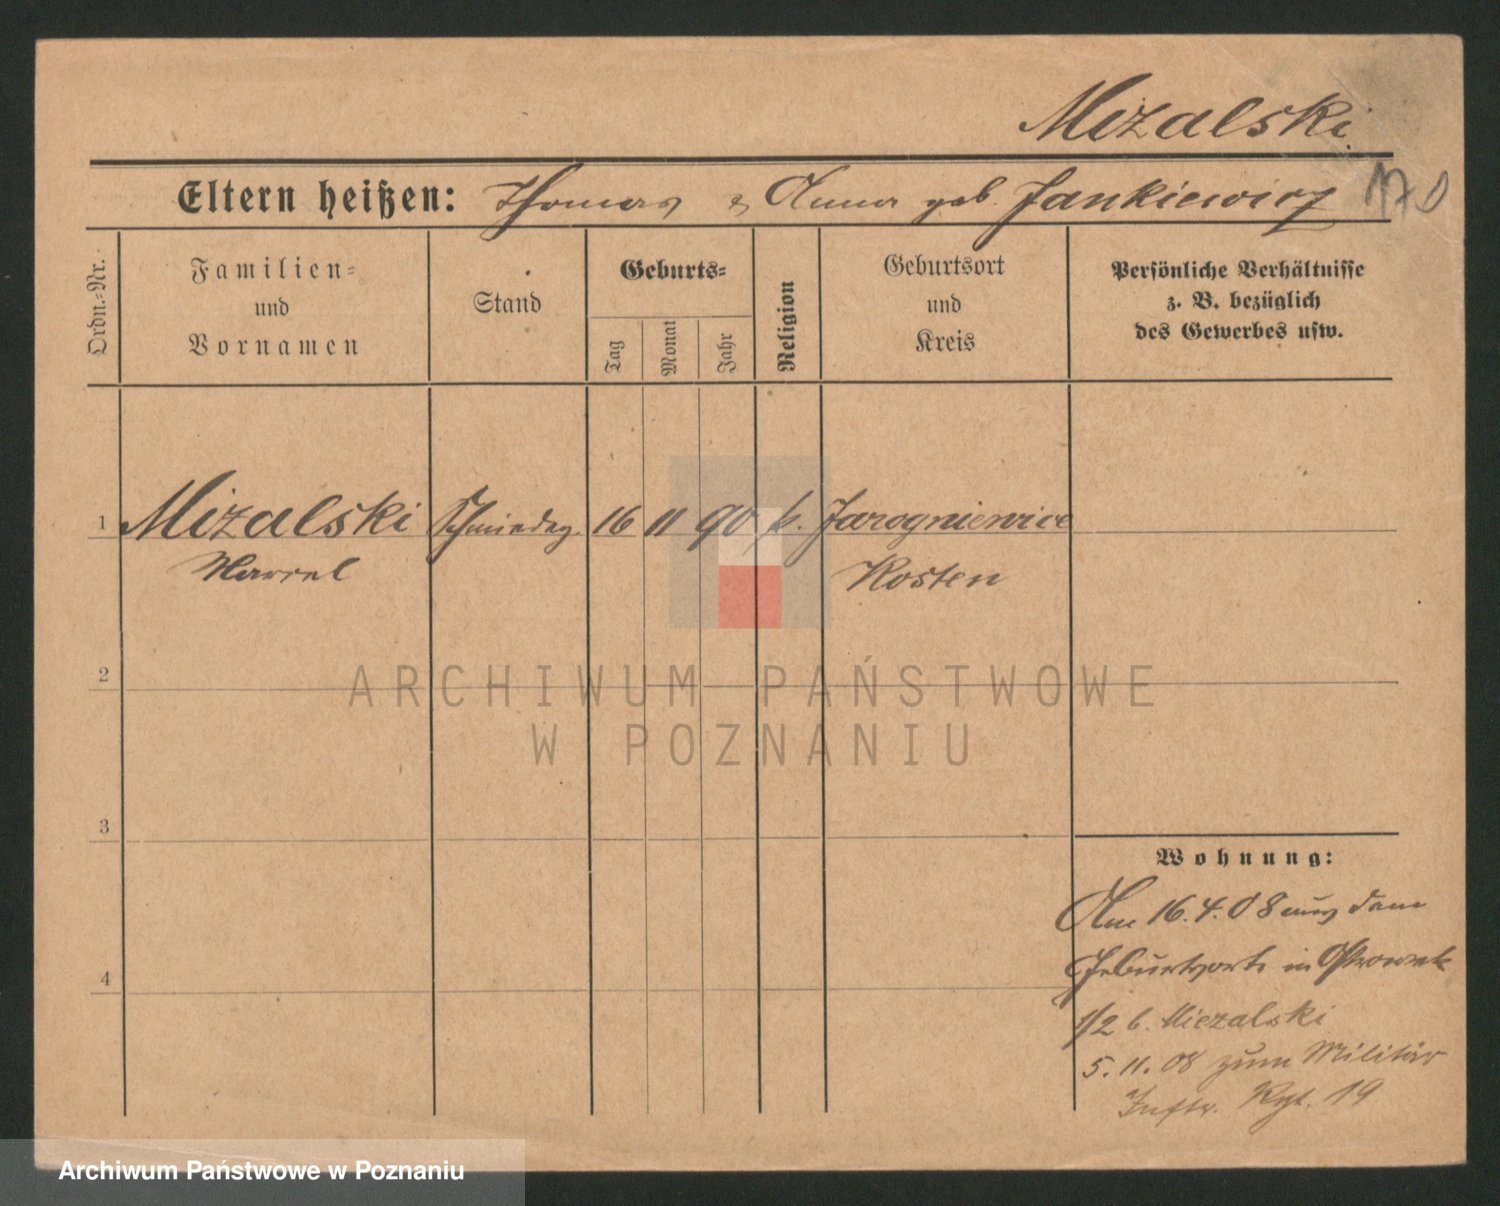 Mizalski
Eltern heißen: Thomas & Anna geb. Jankiewicz 170
Ordn.-Nr.
Familien-
und
Vornamen
Stand
Geburts-
Tag
Monat
Jahr
Religion
Geburtsort
und
Kreis
Persönliche Verhältnisse
z. B. bezüglich
des Gewerbes usw.
1 Mizalski Schmiedeg. 16 11 90 k. Jarogniewice
Marcel Kosten
2
3
4
Wohnung:
Am 16.4.08 aus dem
Geburtsorte in
1/2 b. Miezalski
5.11.08 zum Militär
Inftr. Rgt. 19
ARCHIWUM PAŃSTWOWE
W POZNANIU
Archiwum Państwowe w Poznaniu